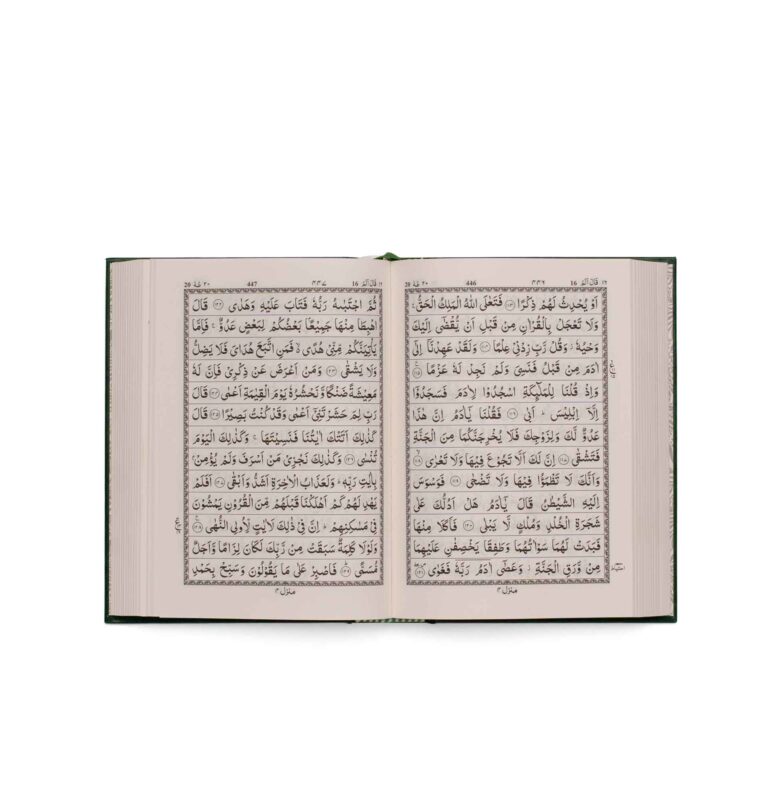 ١٦ قَالَ اَلَمْ 16 446 ٢٠ طٰهٰ 20
اَوْ يُحْدِثُ لَهُمْ ذِكْرًا ﴿١١٣﴾ فَتَعٰلَى اللّٰهُ الْمَلِكُ الْحَقُّ ۚ
وَلَا تَعْجَلْ بِالْقُرْاٰنِ مِنْ قَبْلِ اَنْ يُّقْضٰۤى اِلَيْكَ
وَحْيُهٗ ز وَقُلْ رَّبِّ زِدْنِيْ عِلْمًا ﴿١١٤﴾ وَلَقَدْ عَهِدْنَاۤ اِلٰۤى
اٰدَمَ مِنْ قَبْلُ فَنَسِيَ وَلَمْ نَجِدْ لَهٗ عَزْمًا ﴿١١٥﴾
وَاِذْ قُلْنَا لِلْمَلٰٓئِكَةِ اسْجُدُوْا لِاٰدَمَ فَسَجَدُوْۤا
اِلَّاۤ اِبْلِيْسَ ؕ اَبٰى ﴿١١٦﴾ فَقُلْنَا يٰۤاٰدَمُ اِنَّ هٰذَا
عَدُوٌّ لَّكَ وَلِزَوْجِكَ فَلَا يُخْرِجَنَّكُمَا مِنَ الْجَنَّةِ
فَتَشْقٰى ﴿١١٧﴾ اِنَّ لَكَ اَلَّا تَجُوْعَ فِيْهَا وَلَا تَعْرٰى ﴿١١٨﴾
وَاَنَّكَ لَا تَظْمَؤُا فِيْهَا وَلَا تَضْحٰى ﴿١١٩﴾ فَوَسْوَسَ
اِلَيْهِ الشَّيْطٰنُ قَالَ يٰۤاٰدَمُ هَلْ اَدُلُّكَ عَلٰى
شَجَرَةِ الْخُلْدِ وَمُلْكٍ لَّا يَبْلٰى ﴿١٢٠﴾ فَاَكَلَا مِنْهَا
فَبَدَتْ لَهُمَا سَوْاٰتُهُمَا وَطَفِقَا يَخْصِفٰنِ عَلَيْهِمَا
مِنْ وَّرَقِ الْجَنَّةِ ز وَعَصٰۤى اٰدَمُ رَبَّهٗ فَغَوٰى ﴿١٢١﴾
منزل ٤
١٦ قَالَ اَلَمْ 16 447 ٢٠ طٰهٰ 20
ثُمَّ اجْتَبٰىهُ رَبُّهٗ فَتَابَ عَلَيْهِ وَهَدٰى ﴿١٢٢﴾ قَالَ
اهْبِطَا مِنْهَا جَمِيْعًۢا بَعْضُكُمْ لِبَعْضٍ عَدُوٌّ ۚ فَاِمَّا
يَاْتِيَنَّكُمْ مِّنِّيْ هُدًى ۙ فَمَنِ اتَّبَعَ هُدَايَ فَلَا يَضِلُّ
وَلَا يَشْقٰى ﴿١٢٣﴾ وَمَنْ اَعْرَضَ عَنْ ذِكْرِيْ فَاِنَّ لَهٗ
مَعِيْشَةً ضَنْكًا وَّنَحْشُرُهٗ يَوْمَ الْقِيٰمَةِ اَعْمٰى ﴿١٢٤﴾ قَالَ
رَبِّ لِمَ حَشَرْتَنِيْۤ اَعْمٰى وَقَدْ كُنْتُ بَصِيْرًا ﴿١٢٥﴾ قَالَ
كَذٰلِكَ اَتَتْكَ اٰيٰتُنَا فَنَسِيْتَهَا ۚ وَكَذٰلِكَ الْيَوْمَ
تُنْسٰى ﴿١٢٦﴾ وَكَذٰلِكَ نَجْزِيْ مَنْ اَسْرَفَ وَلَمْ يُؤْمِنْۢ
بِاٰيٰتِ رَبِّهٖ ؕ وَلَعَذَابُ الْاٰخِرَةِ اَشَدُّ وَاَبْقٰى ﴿١٢٧﴾ اَفَلَمْ
يَهْدِ لَهُمْ كَمْ اَهْلَكْنَا قَبْلَهُمْ مِّنَ الْقُرُوْنِ يَمْشُوْنَ
فِيْ مَسٰكِنِهِمْ ؕ اِنَّ فِيْ ذٰلِكَ لَاٰيٰتٍ لِّاُولِي النُّهٰى ﴿١٢٨﴾
وَلَوْلَا كَلِمَةٌ سَبَقَتْ مِنْ رَّبِّكَ لَكَانَ لِزَامًا وَّاَجَلٌ
مُّسَمًّى ﴿١٢٩﴾ فَاصْبِرْ عَلٰى مَا يَقُوْلُوْنَ وَسَبِّحْ بِحَمْدِ
منزل ٤